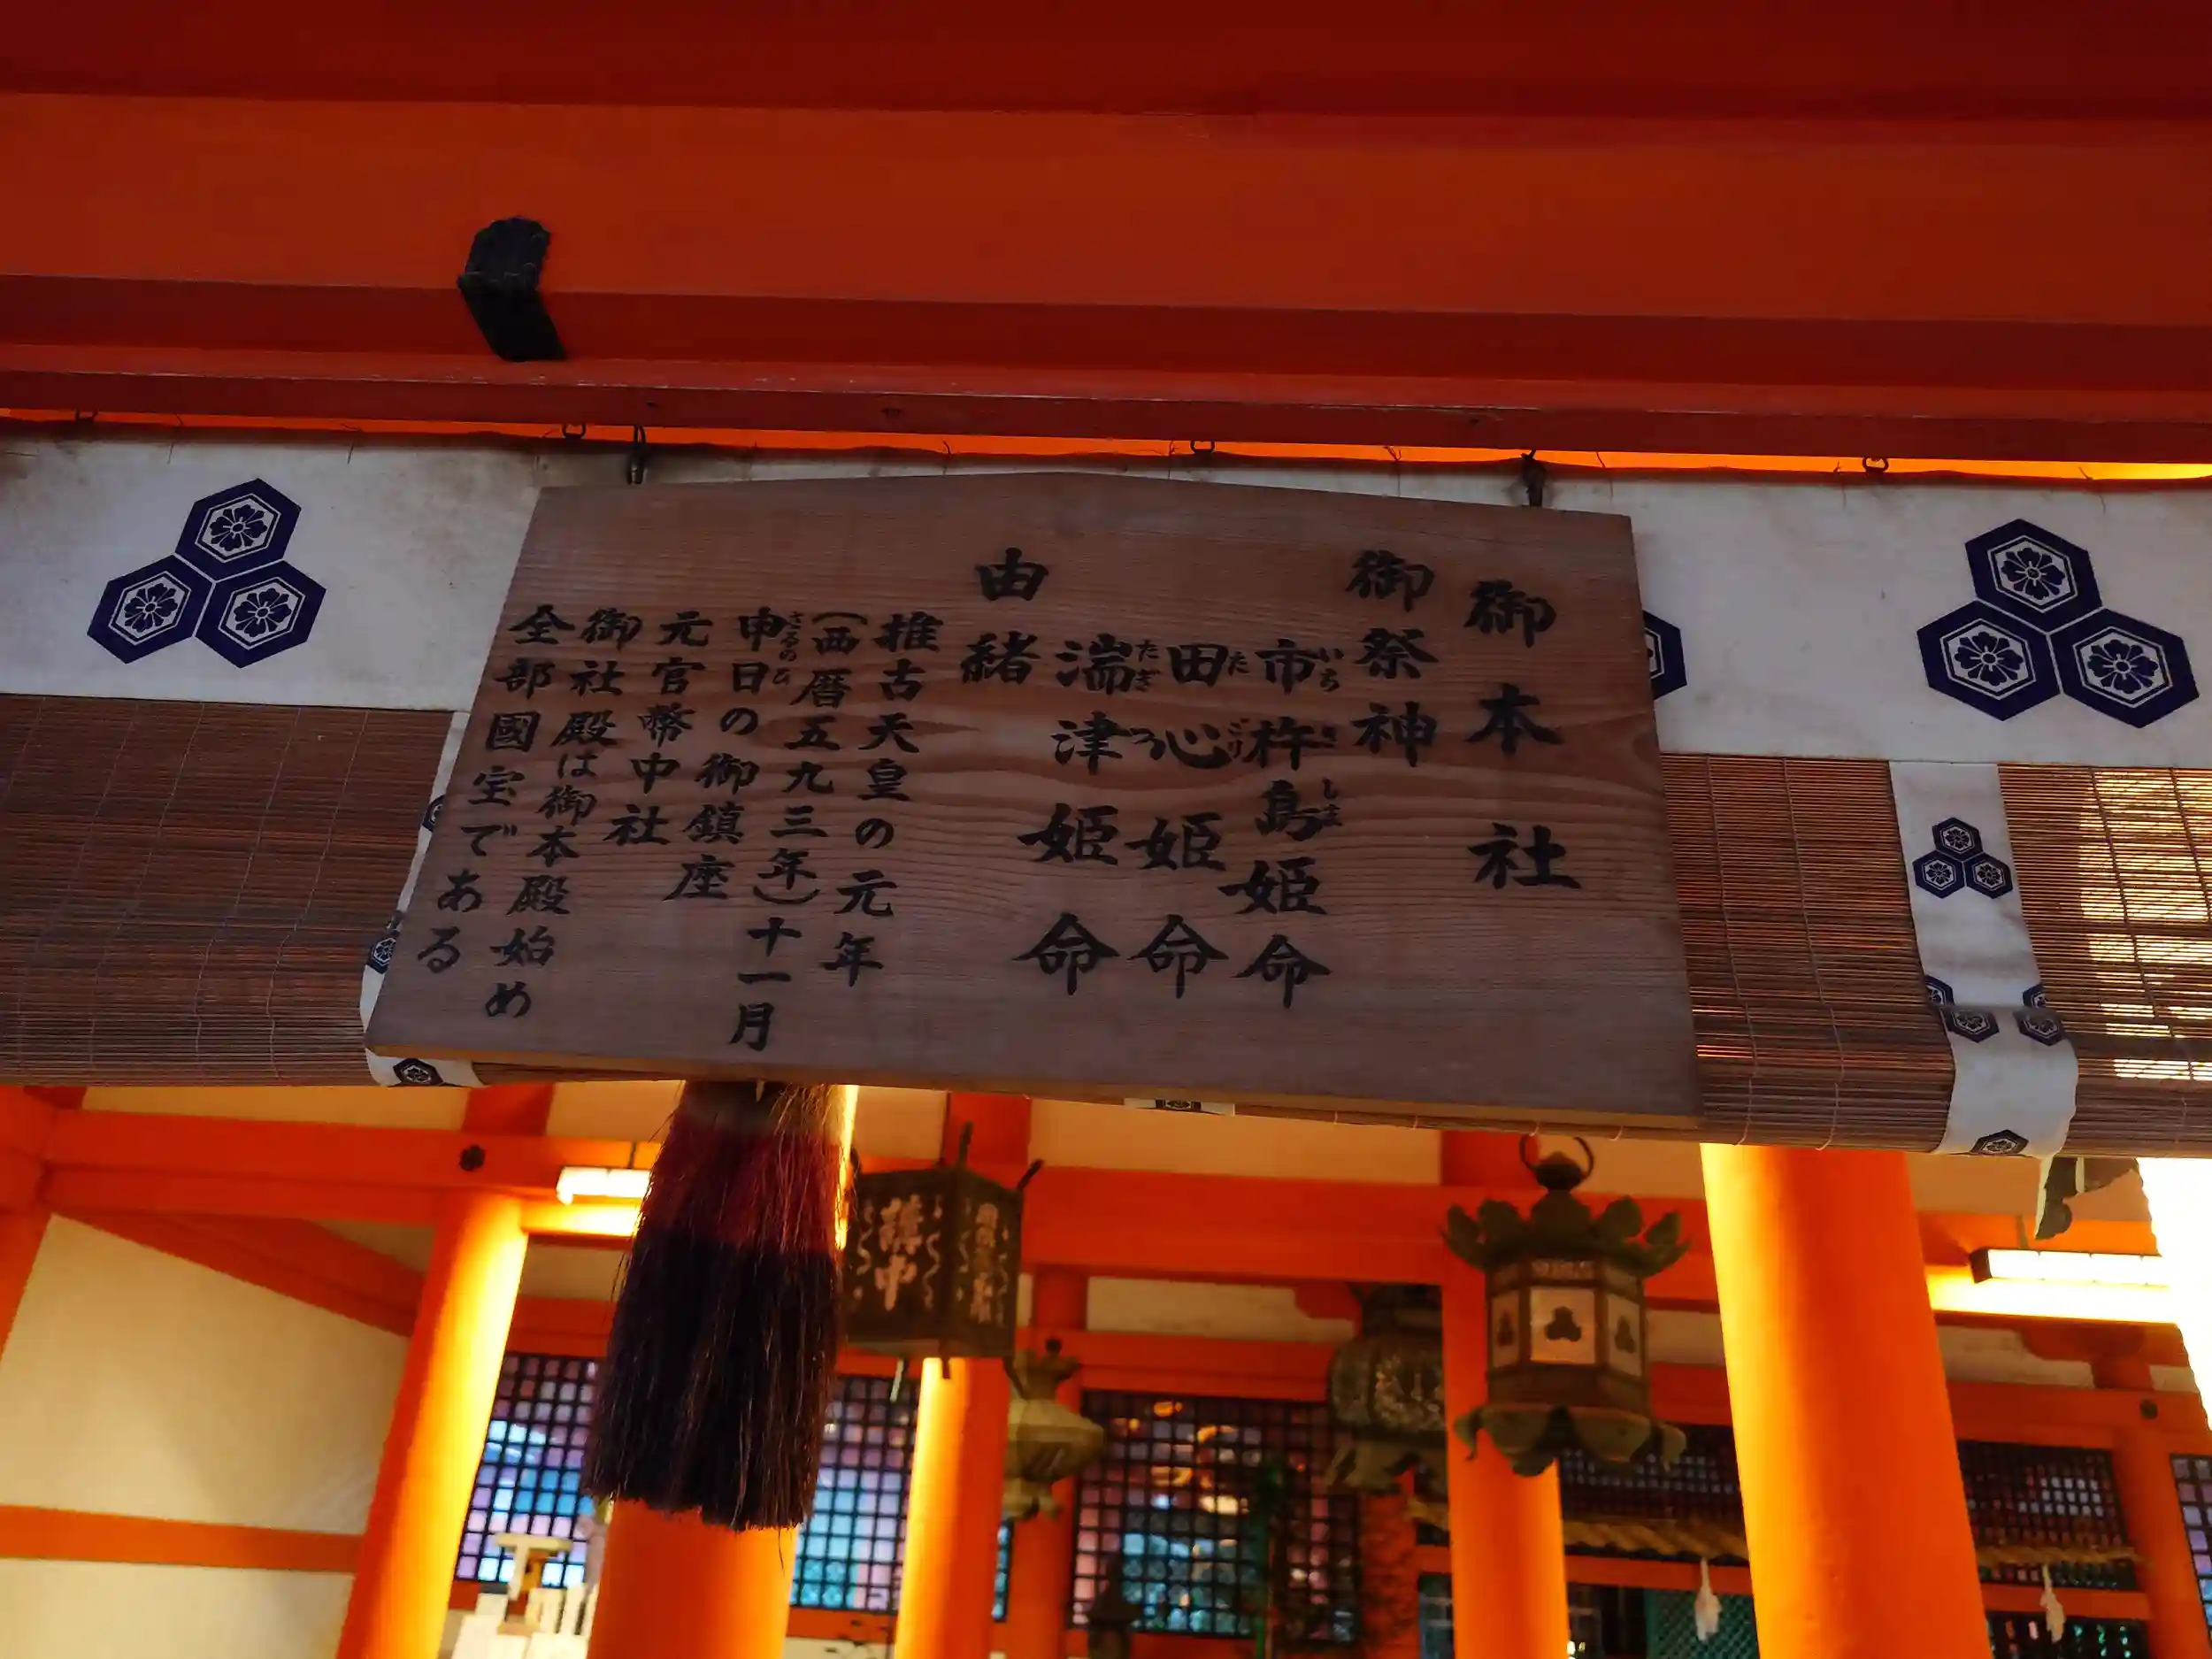 御本社
御祭神
市杵島姫命
いちきしま
田心姫命
たごり
湍津姫命
たぎつ
由緒
推古天皇の元年
(西暦五九三年)十一月
申日の御鎮座
さるのひ
元官幣中社
御社殿は御本殿始め
全部國宝である
講中